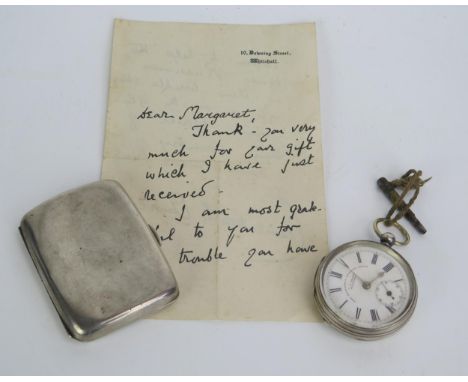 10, Downing Street,
Whitehall.
Dear Margaret,
Thank-you very
much for your gift
which I have just
received.
I am most grate-
ful to you for
trouble you have